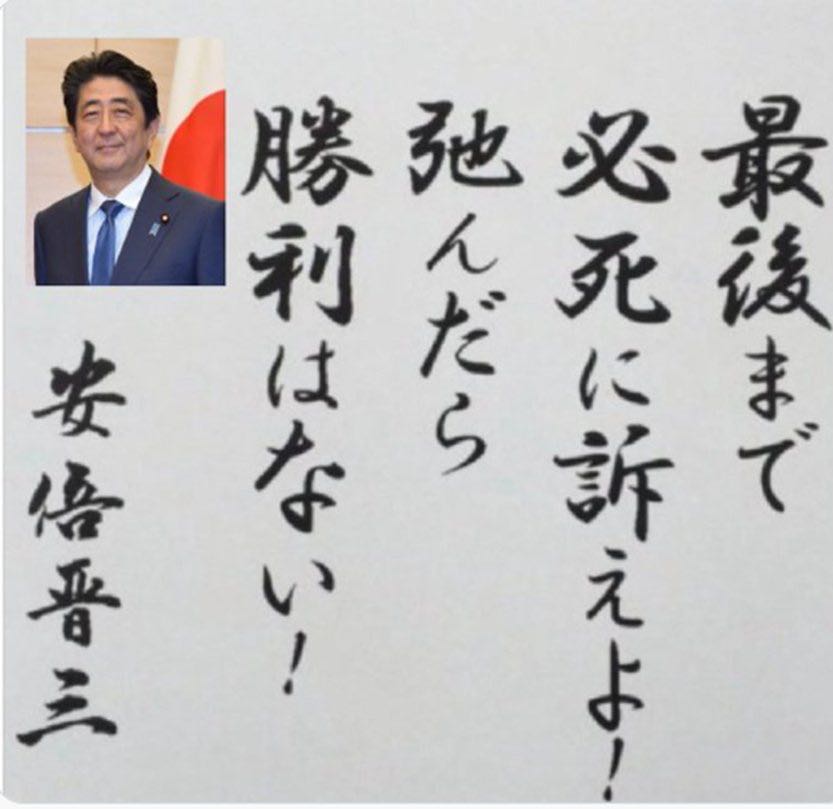 最後まで
必死に訴えよ!
弛んだら
勝利はない!
安倍晋三